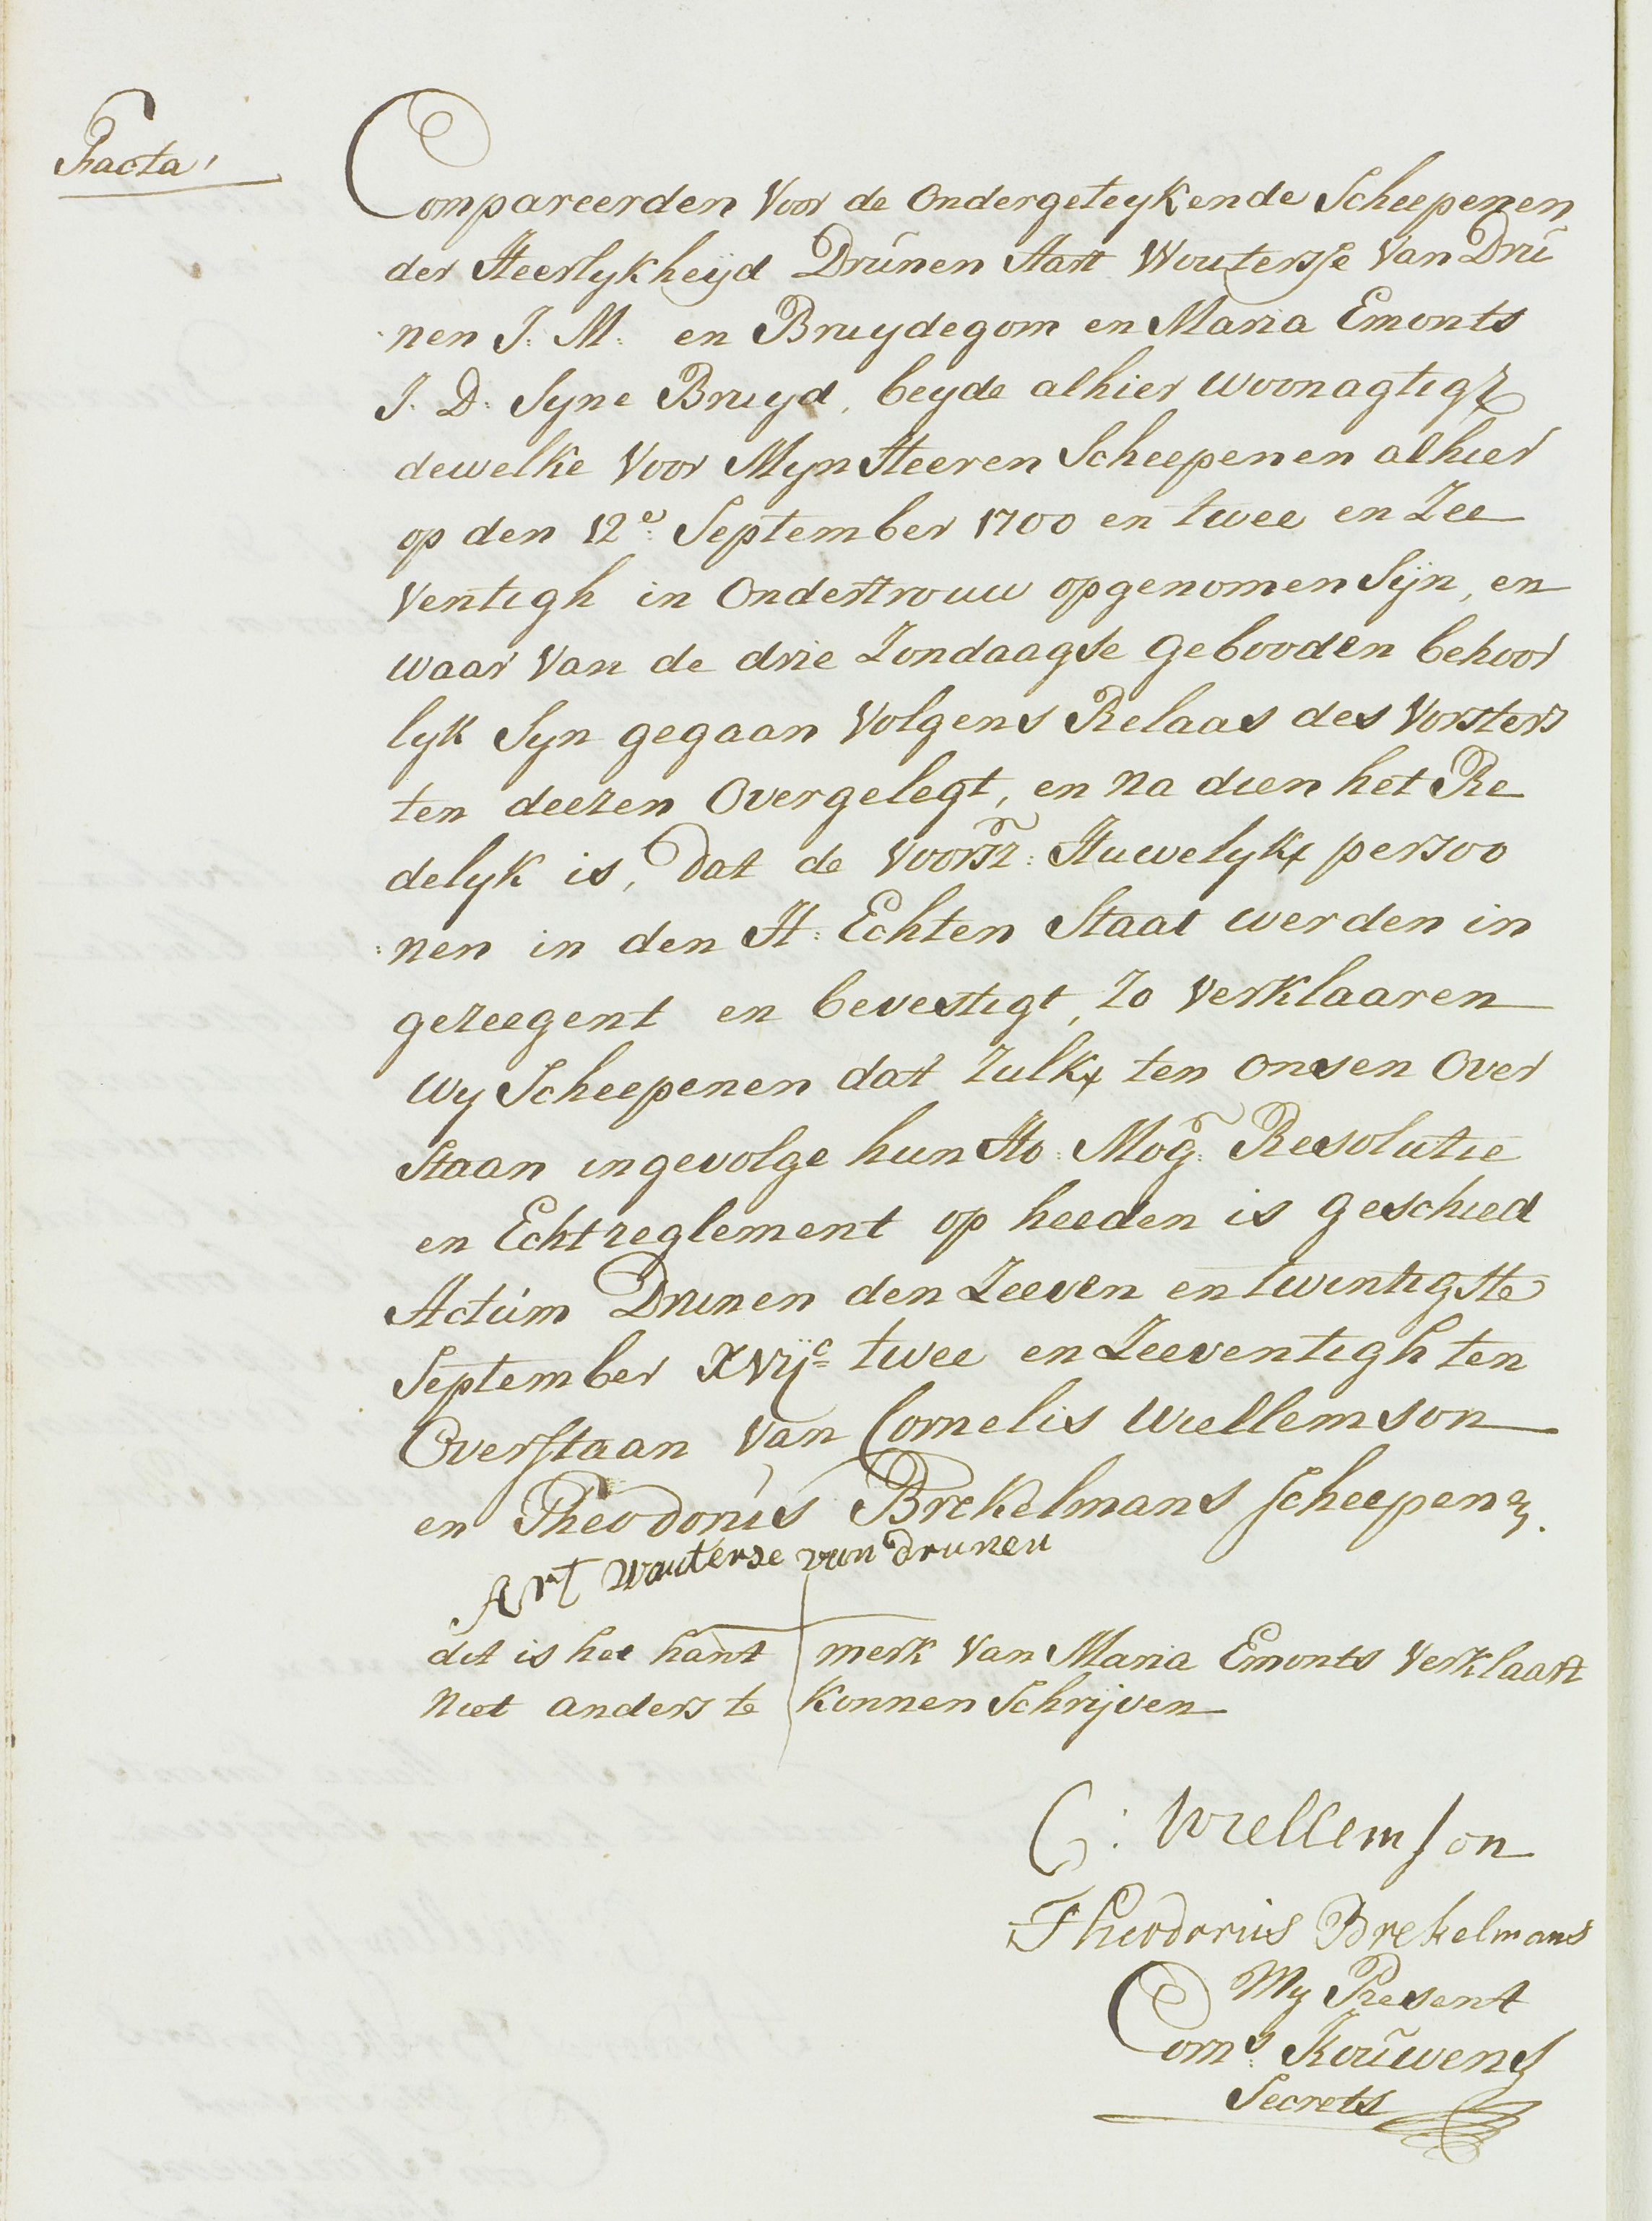 Facta
Compareerden Voor de Ondergeteykende Scheepenen
der Heerlykheijd Drúnen Aart Wouterse Van Drú
nen J: M: en Bruydegom en Maria Emonts
J. D. Syne Bruyd, beyde alhier woonagtig
dewelke Voor Myn Heeren Scheepenen alhier
op den 12e: September 1700 en twee en Zee
Ventigh in Ondertrouw opgenomen Sijn, en
waar Van de drie Zondaagse Gebooden behoor
lyk Syn gegaan Volgens Relaas des Vorsters
ten deezen Overgelegt, en na dien het Re
delyk is, Dat de Voorsz: Huwelykx persoo
nen in den H: Echten Staat werden in
gezeegent en bevestigt, Zo Verklaaren
Wy Scheepenen dat Zulkx ten onsen Over
Staan ingevolge hun Ho: Mog: Resolutie
en Echtreglement op heeden is geschied
Actúm Drunen den Zeeven en twintigste
September XVijc twee en Zeeventigh ten
Overstaan Van Cornelis Wiellemson
en Theodorus Brekelmans Scheepenen.
Art wouterse van drunen
dit is het hant merk Van Maria Emonts Verklaart
niet anders te konnen Schrijven
C: Wiellemson
Theodorus Brekelmans
My Present
Corns: Kouwens
Secrets